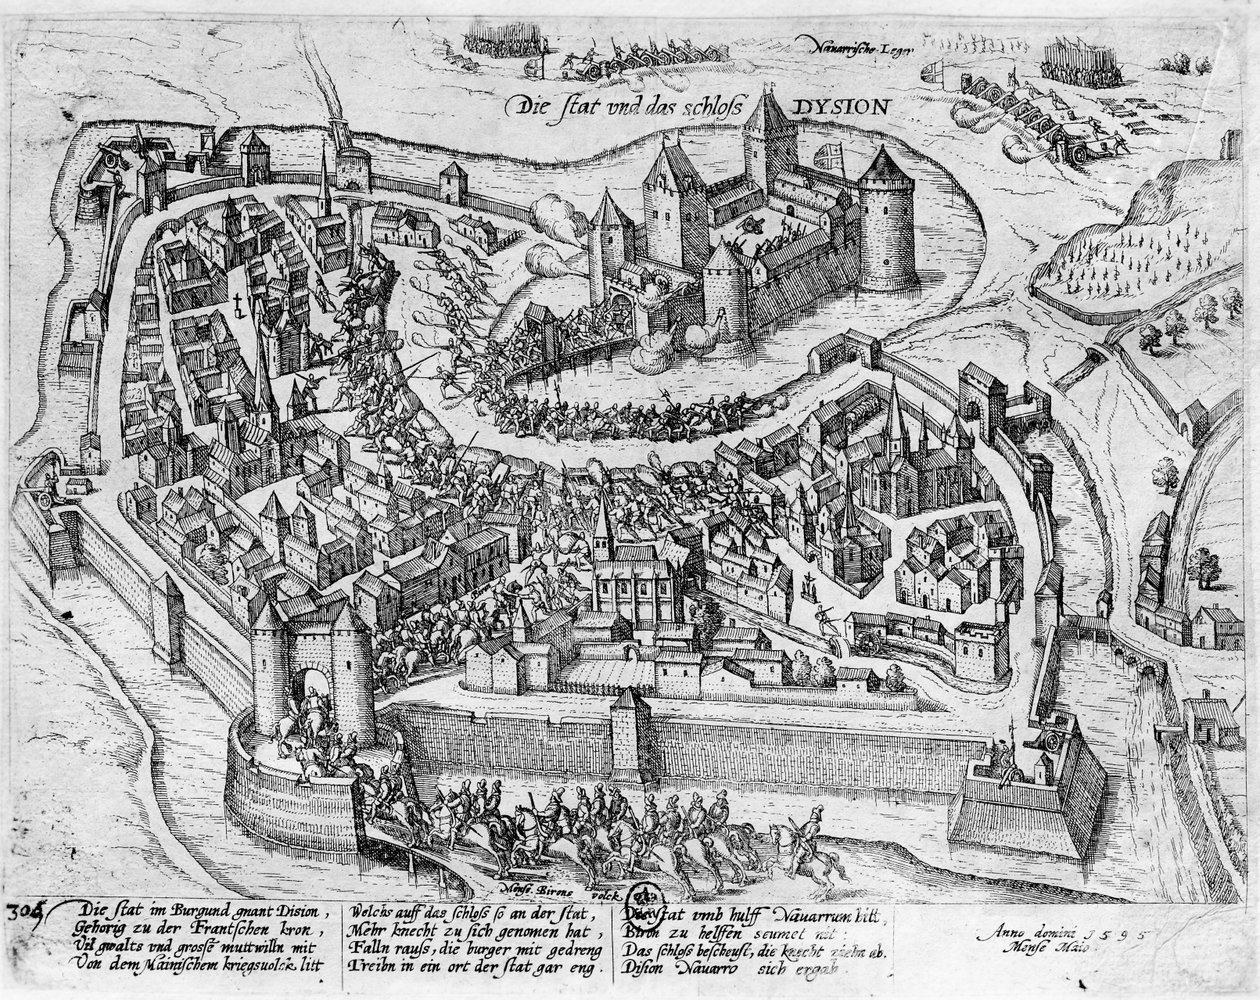 Nauarrische Leger
Die stat vnd das schloss DYSION
Monsr Birons volck
305
Die stat im Burgund gnant Dision,
Gehorig zu der Frantschen kron,
Vil gwalts vnd grosse muttwilln mit
Von dem Mainischem kriegsuolck litt
Welchs auff das schloss so an der stat,
Mehr knecht zu sich genomen hat,
Falln rauss, die burger mit gedreng
Treibn in ein ort der stat gar eng.
Die stat vmb hulff Nauarrum bitt,
Biron zu helffen seumet nit:
Das schloss bescheust, die knecht ziehn ab.
Dision Nauarro sich ergab
Anno domini 1595
Mense Maio